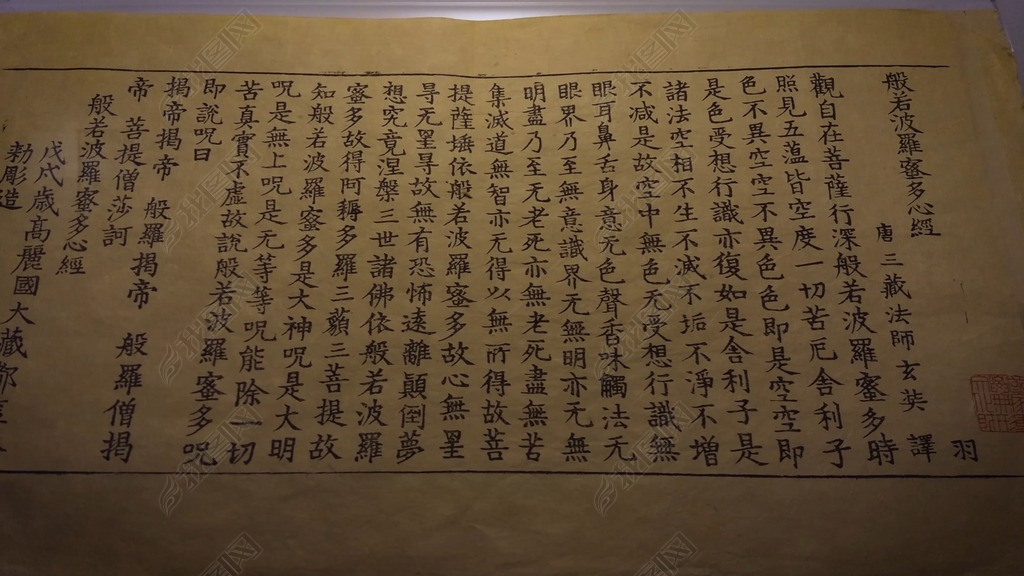 般若波羅蜜多心經
唐三藏法師玄奘 譯 羽
觀自在菩薩行深般若波羅蜜多時
照見五蕰皆空度一切苦厄舍利子
色不異空空不異色色即是空空即
是色受想行識亦復如是舍利子是
諸法空相不生不滅不垢不淨不增
不减是故空中無色无受想行識無
眼耳鼻舌身意无色聲香味觸法无
眼界乃至無意識界无無明亦无無
明盡乃至无老死亦無老死盡無苦
集滅道無智亦无得以無所得故菩
提薩埵依般若波羅蜜多故心無罣
㝵无罣㝵故無有恐怖遠離顛倒夢
想究竟涅槃三世諸佛依般若波羅
蜜多故得阿耨多羅三藐三菩提故
知般若波羅蜜多是大神呪是大明
呪是無上呪是无等等呪能除一切
苦真實不虛故說般若波羅蜜多呪
即說呪曰
揭帝揭帝 般羅揭帝 般羅僧揭
帝 菩提僧莎訶
般若波羅蜜多心經
戊戌歲高麗國大藏都監
勑彫造